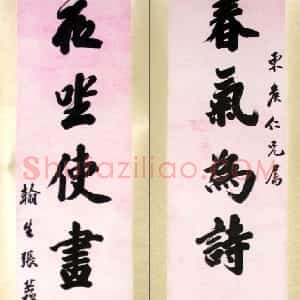 春氣為詩
仁兄屬
坐使畫
翰生張
Shufaziliao.COM